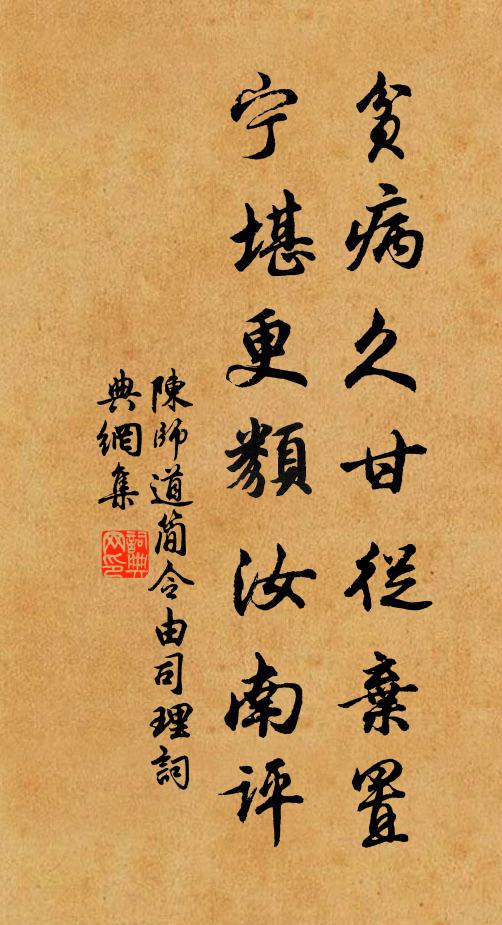 貧病久甘從棄置
宁堪更纇汝南評
陳師道簡令由司理詞
典網集
詞典网印